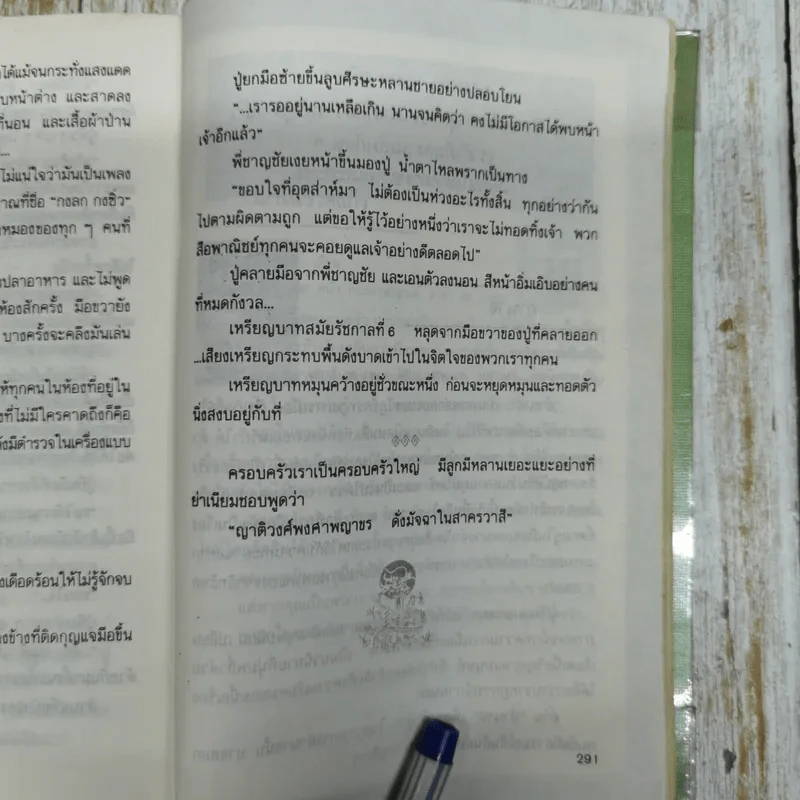 ได้แม้จนกระทั่งแสงแดด
บหน้าต่าง และสาดลง
ที่นอน และเสื้อผ้าป่าน
...
ไม่แน่ใจว่ามันเป็นเพลง
าณที่ชื่อ "กงลก กงชิ่ว"
หมองของทุก ๆ คนที่
ปลาอาหาร และไม่พูด
ห้องสักครั้ง มือขวายัง
บางครั้งจะคลึงมันเล่น
ห้ทุกคนในห้องที่อยู่ใน
งที่ไม่มีใครคาดถึงก็คือ
ังมีตำรวจในเครื่องแบบ
งเดือดร้อนให้ไม่รู้จักจบ
งข้างที่ติดกุญแจมือขึ้น
ปู่ยกมือซ้ายขึ้นลูบศีรษะหลานชายอย่างปลอบโยน
"...เรารออยู่นานเหลือเกิน นานจนคิดว่า คงไม่มีโอกาสได้พบหน้า
เจ้าอีกแล้ว"
พี่ชาญชัยเงยหน้าขึ้นมองปู่ น้ำตาไหลพรากเป็นทาง
"ขอบใจที่อุตส่าห์มา ไม่ต้องเป็นห่วงอะไรทั้งสิ้น ทุกอย่างว่ากัน
ไปตามผิดตามถูก แต่ขอให้รู้ไว้อย่างหนึ่งว่าเราจะไม่ทอดทิ้งเจ้า พวก
สือพาณิชย์ทุกคนจะคอยดูแลเจ้าอย่างดีตลอดไป"
ปู่คลายมือจากพี่ชาญชัย และเอนตัวลงนอน สีหน้าอิ่มเอิบอย่างคน
ที่หมดกังวล...
เหรียญบาทสมัยรัชกาลที่ 6 หลุดจากมือขวาของปู่ที่คลายออก
...เสียงเหรียญกระทบพื้นดังบาดเข้าไปในจิตใจของพวกเราทุกคน
เหรียญบาทหมุนคว้างอยู่ชั่วขณะหนึ่ง ก่อนจะหยุดหมุนและทอดตัว
นิ่งสงบอยู่กับที่
ครอบครัวเราเป็นครอบครัวใหญ่ มีลูกมีหลานเยอะแยะอย่างที่
ย่าเนียมชอบพูดว่า
"ญาติวงศ์พงศาพญาขร ดั่งมัจฉาในสาครวาสี"
291